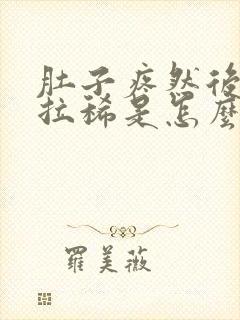 肚子疼然後
拉稀是怎麼
羅美薇